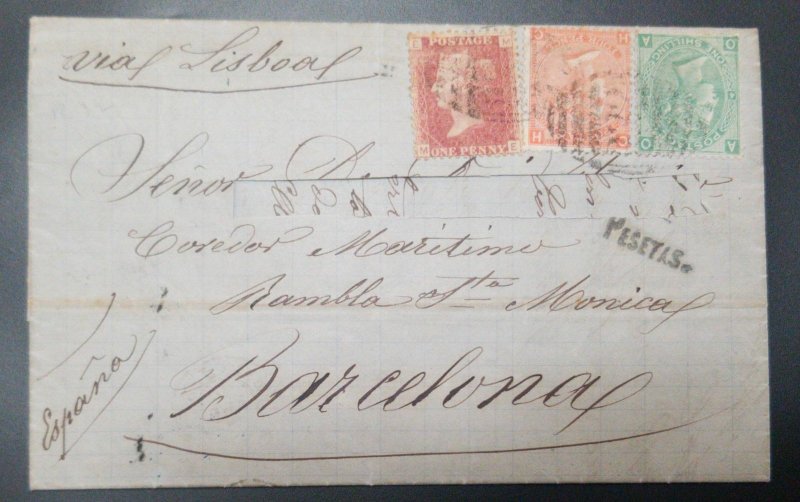 via Lisboa
POSTAGE
ONE PENNY
E M
M E
H C
C H
ONE SHILLING
O A
A O
Señor D.
PESETAS.
Coredor Maritimo
Rambla Sta Monica
Barcelona
España